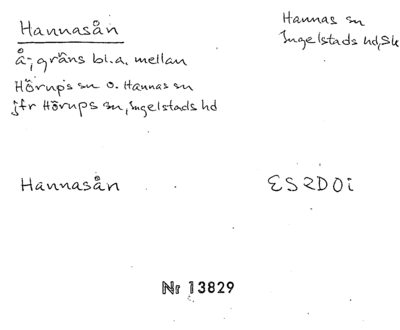 Hannasån
Hannas sn
Ingelstads hd, Sk
å; gräns bl.a. mellan
Hörups sn o. Hannas sn
jfr Hörups sn, Ingelstads hd
Hannasån
ES2D0i
Nr 13829